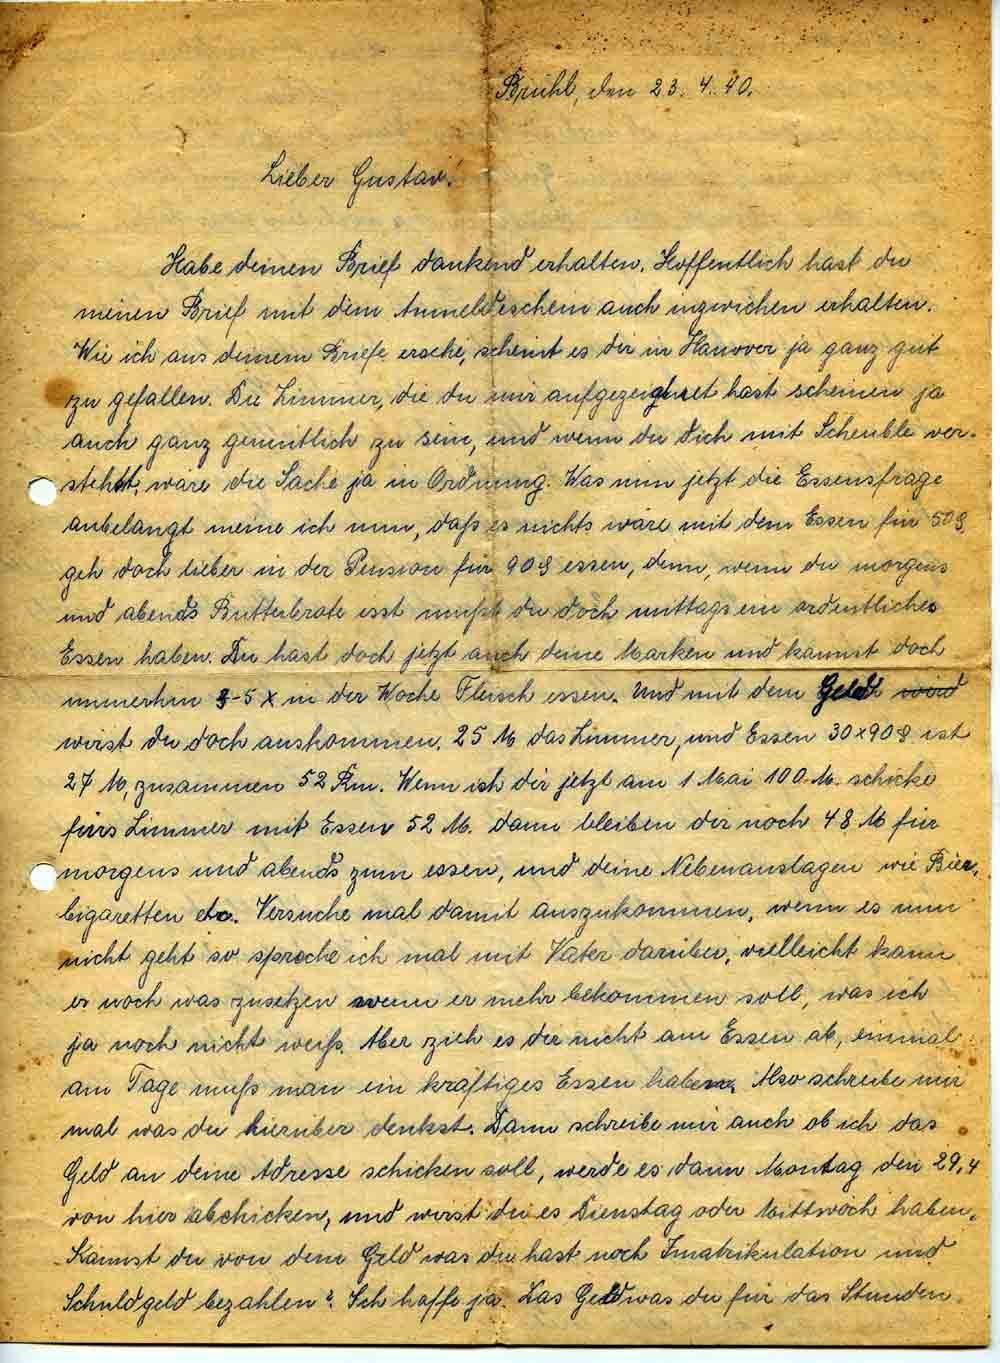 Brühl, den 23.4.40.
Lieber Gustav!
Habe deinen Brief dankend erhalten. Hoffentlich hast du
meinen Brief mit dem Anmeldeschein auch inzwichen erhalten.
Wie ich aus deinem Briefe ersehe, scheint es dir in Hanover ja ganz gut
zu gefallen. Die Zimmer, die du mir aufgezeignet hast scheinen ja
auch ganz gemütlich zu sein, und wenn du dich mit Scheuble ver-
stehst, wäre die Sache ja in Ordnung. Was nun jetzt die Essensfrage
anbelangt meine ich nun, daß es nichts wäre mit dem Essen für 50 ₰.
geh doch lieber in der Pension für 90 ₰ essen, denn, wenn du morgens
und abends Butterbrote esst mußt du doch mittags ein ordentliches
Essen haben. Du hast doch jetzt auch deine Marken und kannst doch
immerhin 3-5 x in der Woche Fleisch essen. Und mit dem Geld wird
wirst du doch auskommen. 25 M das Zimmer, und Essen 30x90 ₰. ist
27 M, zusammen 52 Rm. Wenn ich dir jetzt am 1 Mai 100 M. schicke
fürs Zimmer mit Essen 52 M. dann bleiben dir noch 48 M für
morgens und abends zum essen, und deine Nebenauslagen wie Bier,
Cigaretten etc. Versuche mal damit auszukommen, wenn es nun
nicht geht so spreche ich mal mit Vater darüber, vielleicht kann
er noch was zusetzen wenn er mehr bekommen soll, was ich
ja noch nicht weiß. Aber zieh es dir nicht am Essen ab, einmal
am Tage muß man ein kräftiges Essen haben. Also schreibe mir
mal was du hierüber denkst. Dann schreibe mir auch ob ich das
Geld an deine Adresse schicken soll, werde es dann Montag den 29.4
von hier abchicken, und wirst du es Dienstag oder Mittwoch haben.
Kannst du von dem Geld was du hast noch Imatrikulation und
Schuldgeld bezahlen? Ich hoffe ja. Das Geld was du für das Stunden